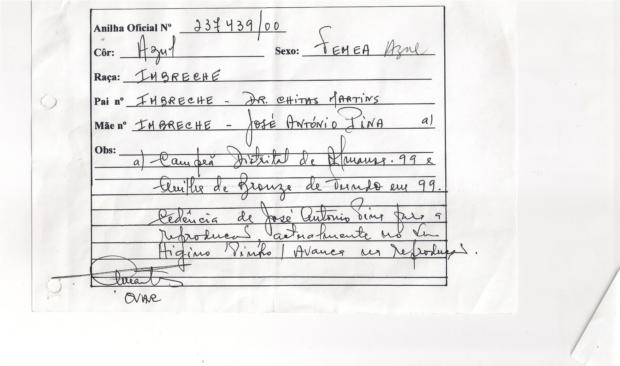 Anilha Oficial Nº 237439/00
Côr: Azul Sexo: FEMEA Azul
Raça: IMBRECHE
Pai nº IMBRECHE - DR. CHITAS MARTINS
Mãe nº IMBRECHE - JOSÉ ANTÓNIO PINA a)
Obs:
a) Campeã Distrital de 99 e
de Bronze de em 99.
Cedência de José António para a
reprodução actualmente no
Higino Pinho / Avanca
OVAR